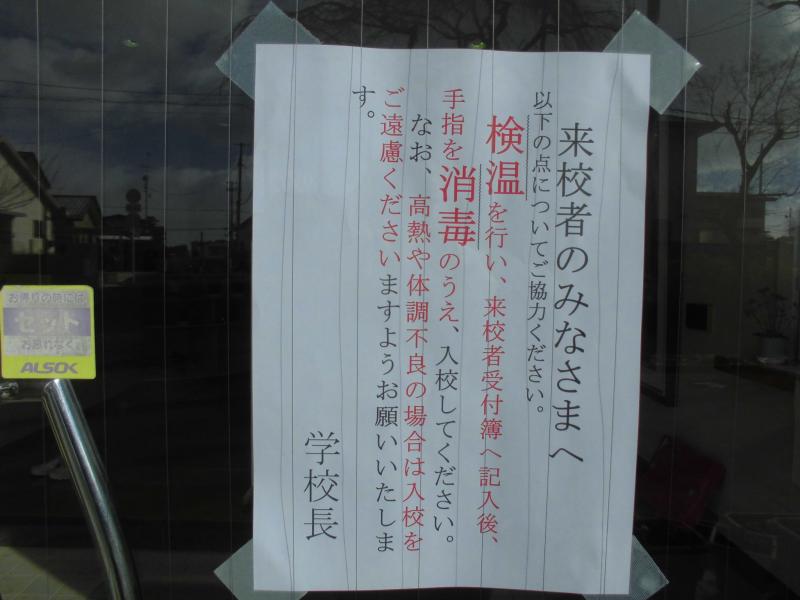 来校者のみなさまへ
以下の点についてご協力ください。
検温を行い、来校者受付簿へ記入後、
手指を消毒のうえ、入校してください。
なお、高熱や体調不良の場合は入校を
ご遠慮くださいますようお願いいたしま
す。
学校長
お帰りの際には
セット
お忘れなく
ALSOK